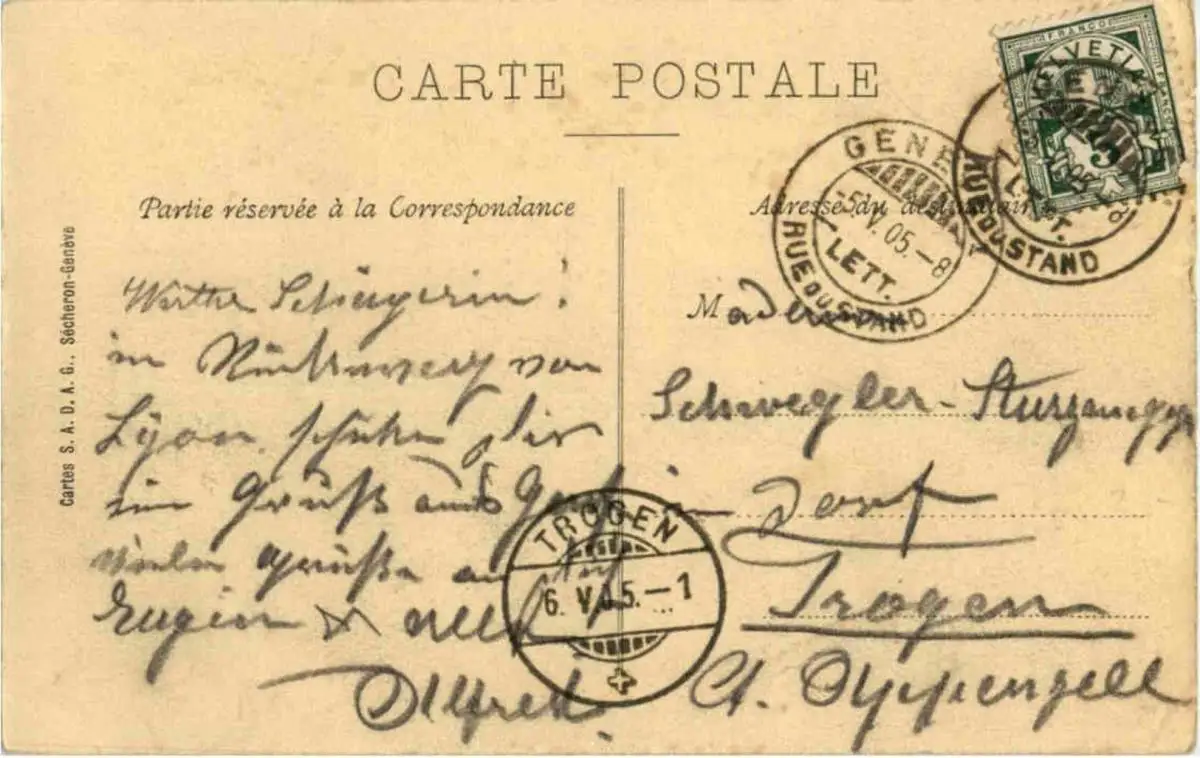 CARTE POSTALE
Partie réservée à la Correspondance
Adresse du destinataire
Cartes S. A. D. A. G., Sécheron-Genève
FRANCO
HELVETIA
5
GENÈ
-5.V.05.-8
LETT.
RUE DU STAND
GEN
LETT.
RUE DU STAND
Werthe Schwägerin!
im Rückweg von
Lyon schicke Dir
ein Gruß aus Genf
viele Grüße an
Eugen &
Alfred
TROGEN
6. V.05.-1
Madame
Schwegler-Sturzenegger
Dorf
Trogen
Ct. Appenzell